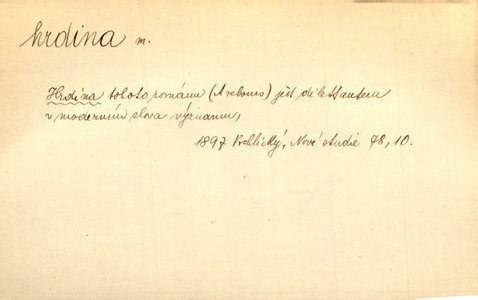 hrdina m.
Hrdina tohoto románu (A rebours) jest dilettantem
v moderním slova významu,
1897 Vrchlický, Nové studie 48, 10.